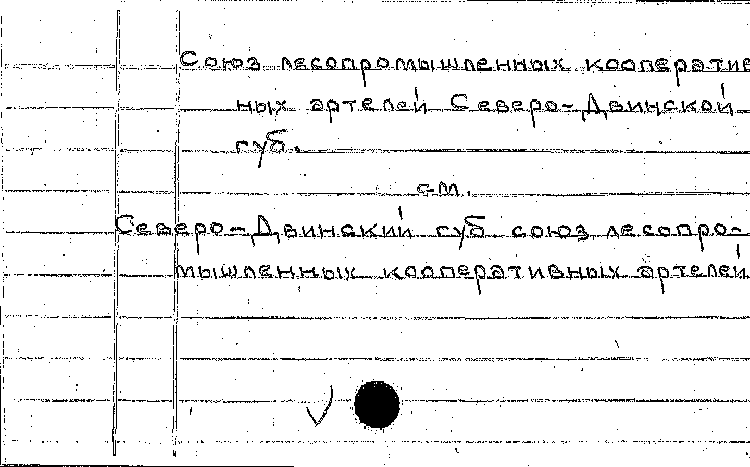 Союз лесопромышленных кооператив
ных артелей Северо-Двинской
губ.
см.
Северо-Двинский губ союз лесопро-
мышленных кооперативных артелей